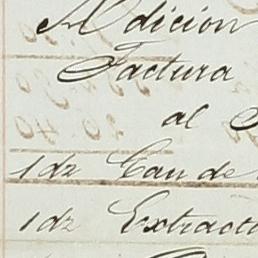 Adición
Factura
al
1 dz Eau de
1 dz Extracto